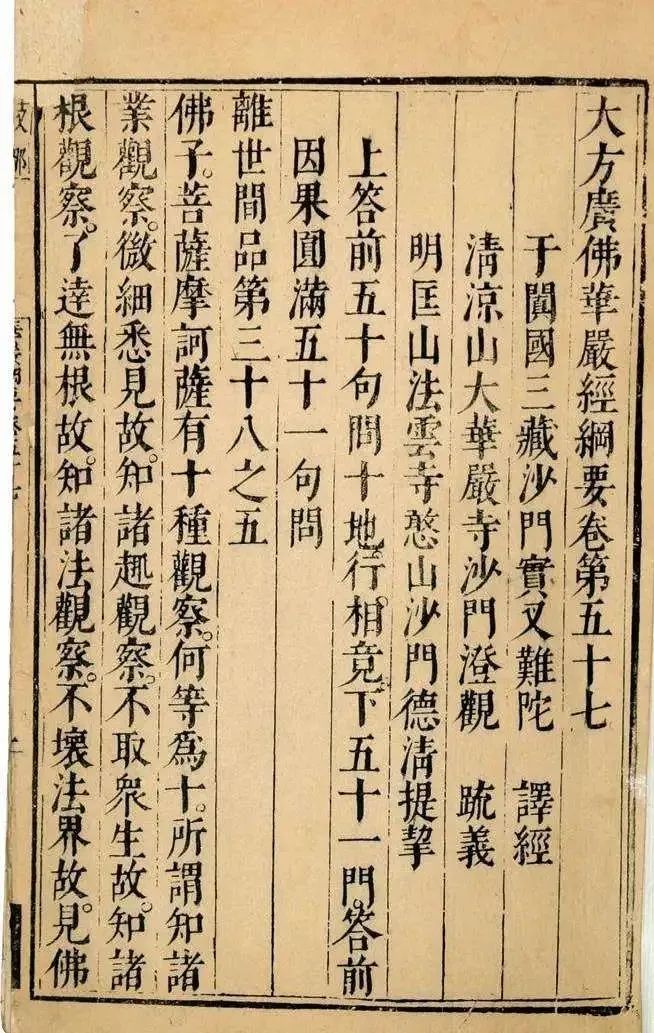 大方廣佛華嚴經綱要卷第五十七
于闐國三藏沙門實叉難陀 譯經
清涼山大華嚴寺沙門澄觀 疏義
明匡山法雲寺憨山沙門德清提挈
上答前五十句問十地。行。相竟。下五十一門。答前
因果圓滿五十一句問
離世間品第三十八之五
佛子。菩薩摩訶薩有十種觀察。何等爲十。所謂知諸
業觀察。微細悉見故。知諸趣觀察。不取衆生故。知諸
根觀察。了達無根故。知諸法觀察。不壞法界故。見佛